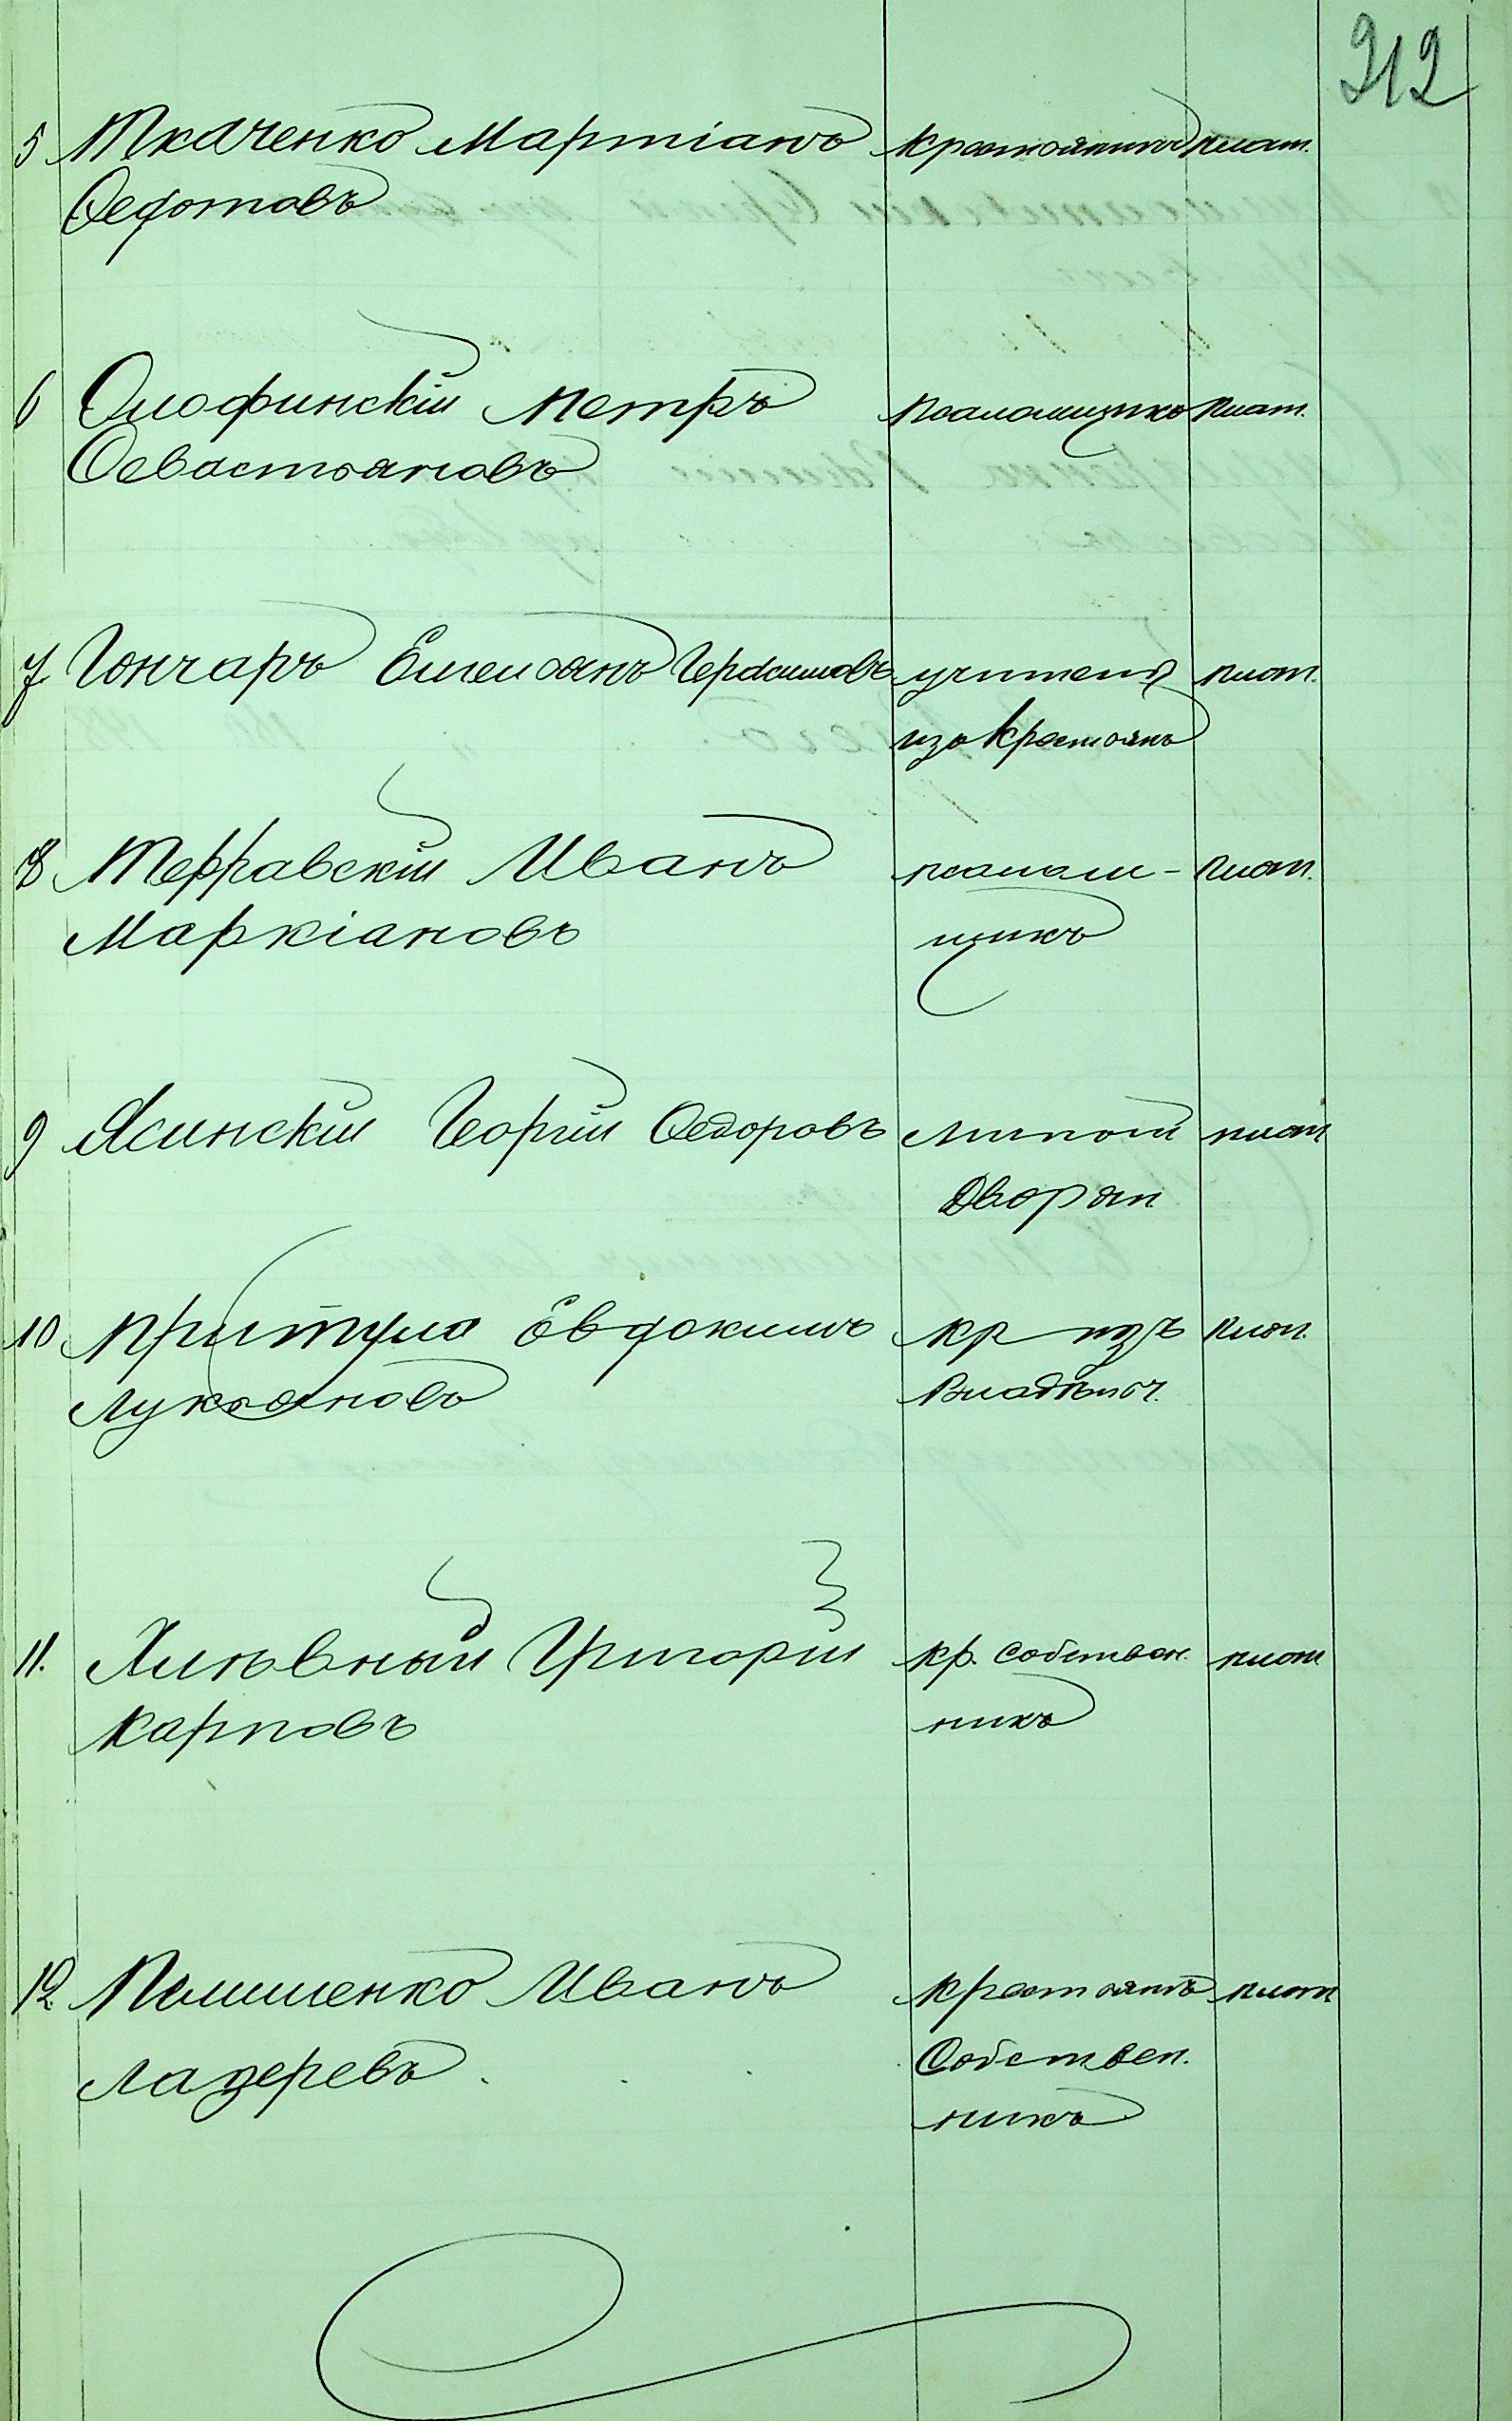 212
5 Ткаченко Мартіанъ крестьянинъ плат.
Федотовъ
6 Олофинскій Петръ псаломщикъ плат.
Севастьяновъ
7 Гончаръ Емельянъ Герасимовъ учитель плат.
изъ крестьянъ
8 Терравскій Иванъ псалом- плат.
Маркіановъ щикъ
9 Ясинскій Георгій Федоровъ личной плат
дворян.
10 Притула Евдокимъ кр изъ плат.
Лукьяновъ Владѣльч.
11. Хмѣвный Григорій кр. собствен. плат
Карповъ никъ
12. Иванъ крестьянъ плат
Лазеревъ. Собствен.
никъ